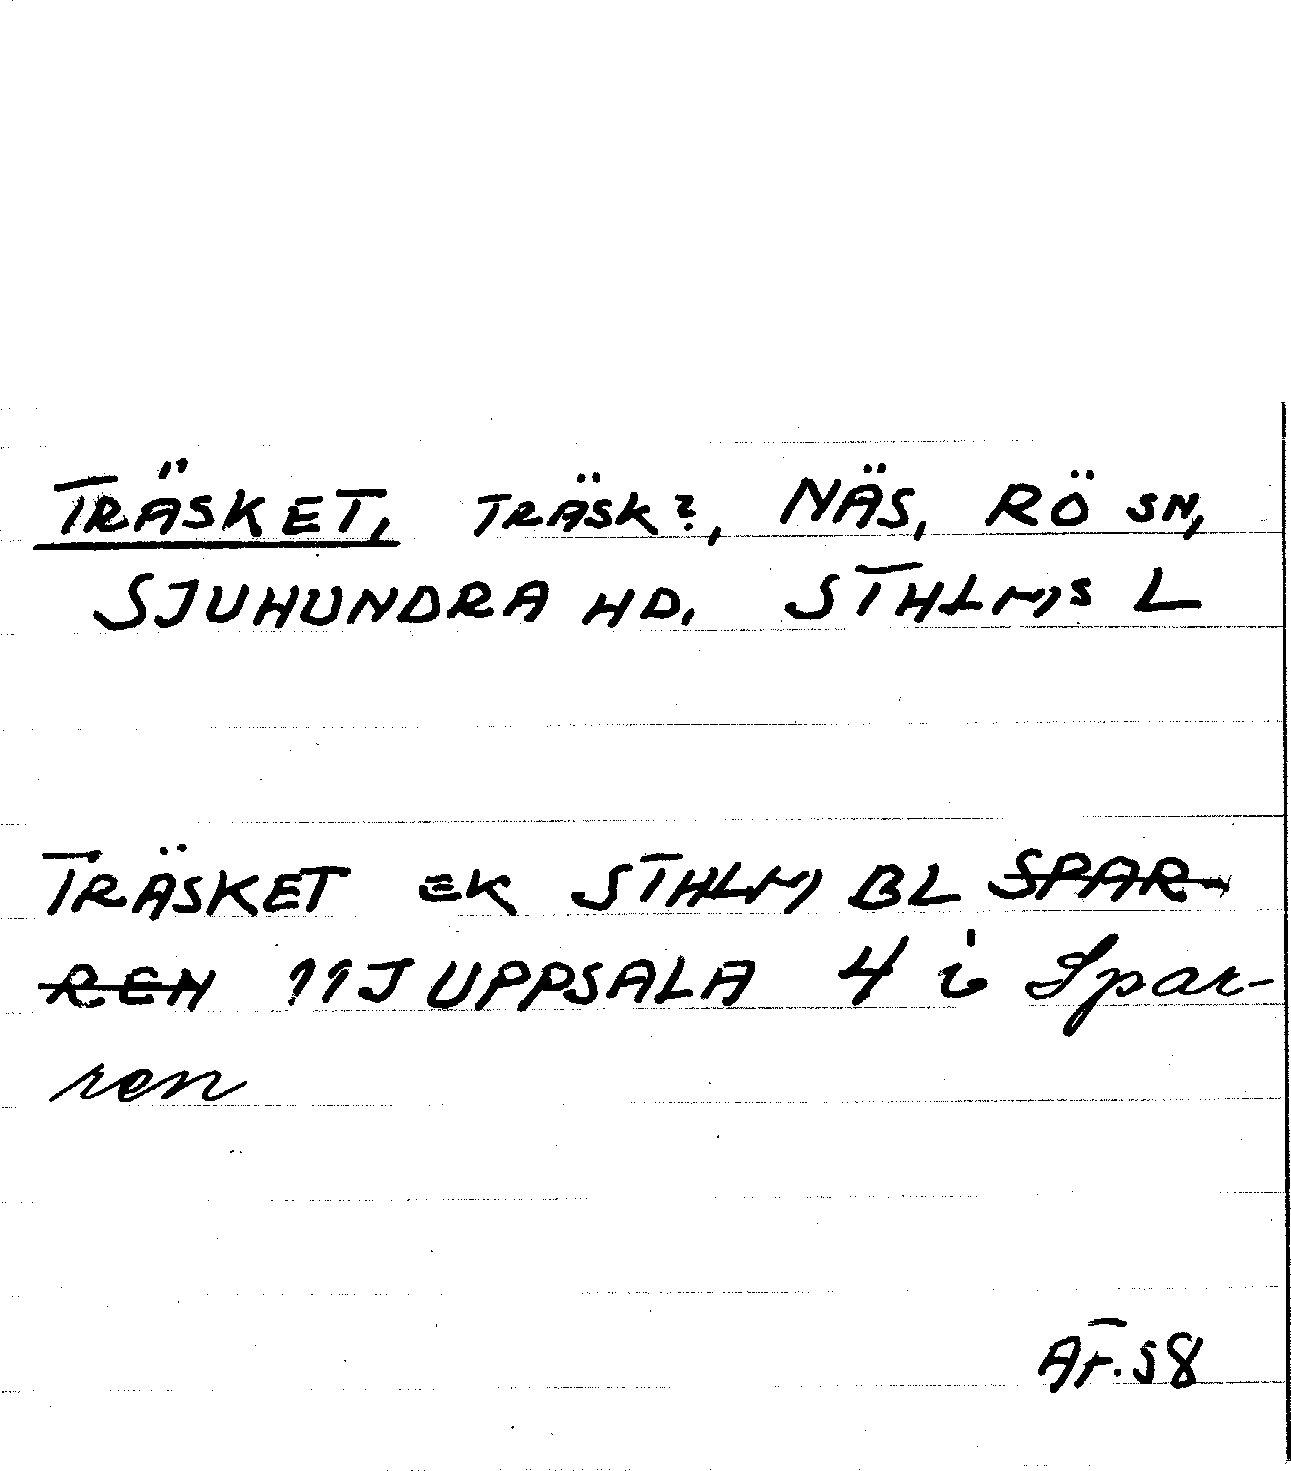 TRÄSKET, TRÄSK?, NÄS, RÖ SN,
SJUHUNDRA HD. STHLMS L
TRÄSKET EK STHLM BL SPAR-
REN 11J UPPSALA 4 i Spar-
ren
AF. 58